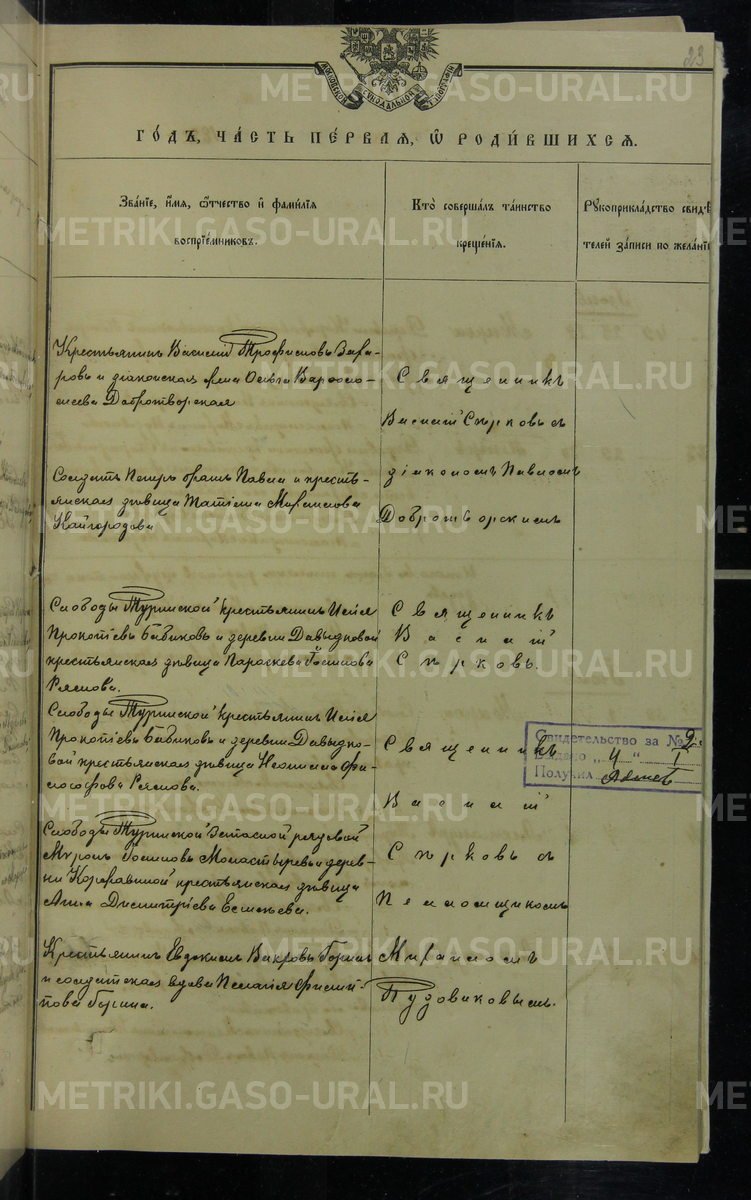 23
МОСКОВСКОЙ СѴНОДАЛЬНОЙ ТѴПОГРАФІИ
ГО́ДЪ, ЧА́СТЬ ПЕ́РВАЯ, Ѿ РОДИ́ВШИХСЯ.
Зва́ніе, и́мя, ѻ҆́тчество и҆ фами́лія
воспріе́мниковъ.
Кто̀ соверша́лъ та́инство
креще́нія.
Рꙋкоприкла́дство свидѣ́
телей за́писи по жела́нїю
Крестьянинъ Василій Трофимовъ Заха-
ровъ и діаконская жена Ольга Варѳоло-
меева Добротворская
Священникъ
Василій Сѣрковъ съ
Солдатъ Петръ братъ Павла и кресть-
янская дѣвица Татіана Михаилова
Кайгородова
діакономъ Павломъ
Добротворскимъ
Слободы Туринской крестьянинъ Исаія
Прокопіевъ Бабиковъ и деревни Давыдковой
крестьянская дѣвица Параскева Іосифова
Ряснова.
Священникъ
Василій
Сѣрковъ.
Слободы Туринской крестьянинъ Исаія
Прокопіевъ Бабиковъ и деревни Давыдко-
вой крестьянская дѣвица Неонила Фи-
лософова Ряснова.
Священникъ
Василій
Свидетельство за № 2
Выдано „ 4 “ I
Получил
Слободы Туринской Запасной рядовой
Миронъ Іосифовъ Монастыревъ и дерев-
ни Коржавиной крестьянская дѣвица
Анна Димитріева Есенева.
Сѣрковъ съ
Псаломщикомъ
Крестьянинъ Евдокимъ Горинъ
и солдатская вдова Пелагія Филип-
пова Горина.
Михаиломъ
Пудовиковымъ.
METRIKI.GASO-URAL.RU